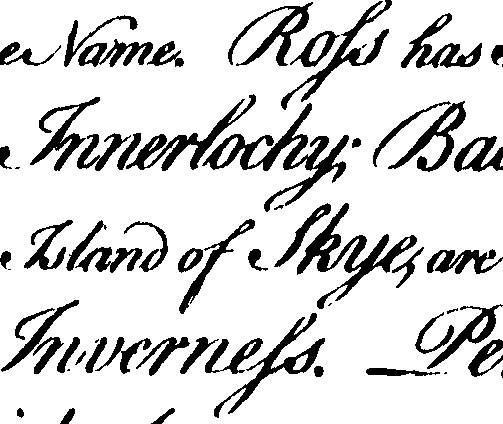 Name. Roſs has
Innerlochy; Ba
Island of Skye, are
Inverneſs. _ Pe